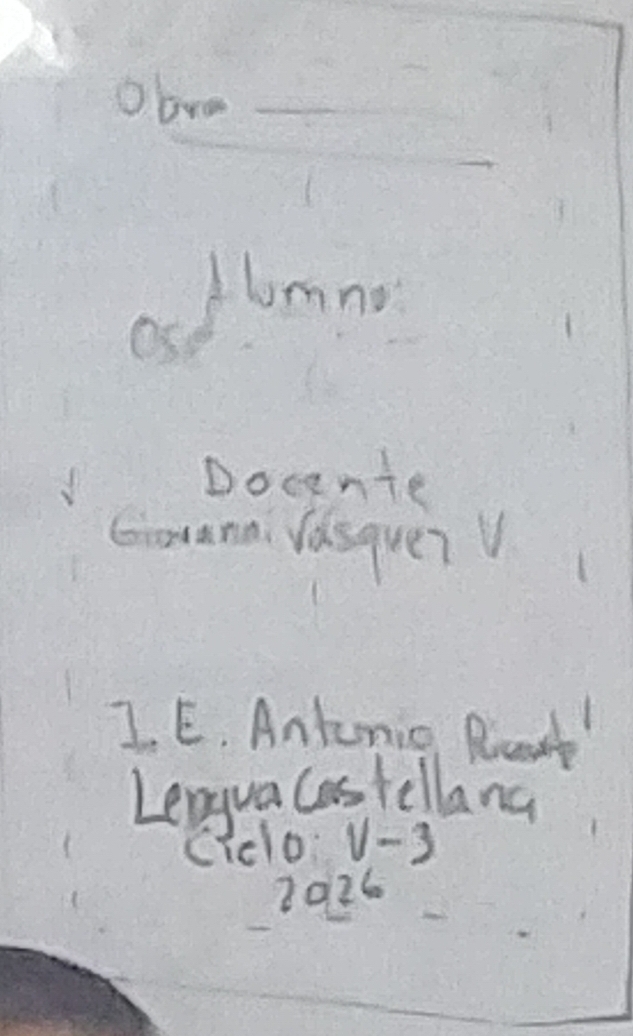 Obra
Alumno:
Docente
Giovanni Vásquez V
I.E. Antonio Ricaurte
Lengua Castellana
Ciclo: V-3
2026